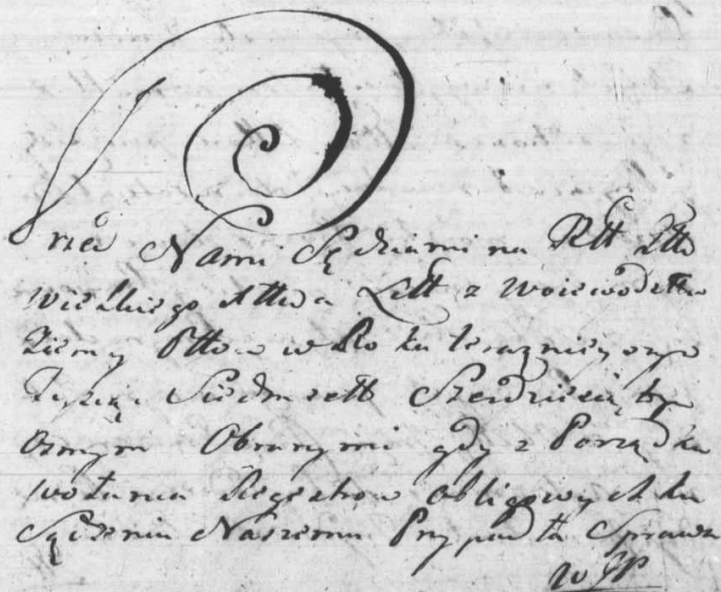 Przed Nami Sędziami na Rłł Łłłł
wielkiego Xttwa Litt z Woiewodztw
Ziemy Pttow w Roku teraznieyszym
Tysiąc Siedmsett Szescdziesiątym
osmym Obranymi gdy z Porządku
wołania Regestrow obligowych ku
Sądzeniu Naszemu Przypadła Sprawa
W JP